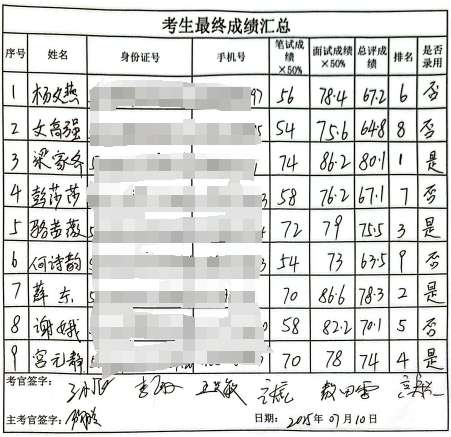 考生最终成绩汇总
序号 姓名 身份证号 手机号 笔试成绩×50% 面试成绩×50% 总评成绩 排名 是否录用
1 杨文燕 97 56 78.4 67.2 6 否
2 文高强 54 75.6 64.8 8 否
3 梁家冬 74 86.2 80.1 1 是
4 彭莎莎 58 76.2 67.1 7 否
5 骆茜薇 72 79 75.5 3 是
6 何诗韵 54 73 63.5 9 否
7 薛东 70 86.6 78.3 2 是
8 谢娥 58 82.2 70.1 5 否
9 宫元静 70 78 74 4 是
考官签字：
主考官签字： 日期： 2015年07月10日